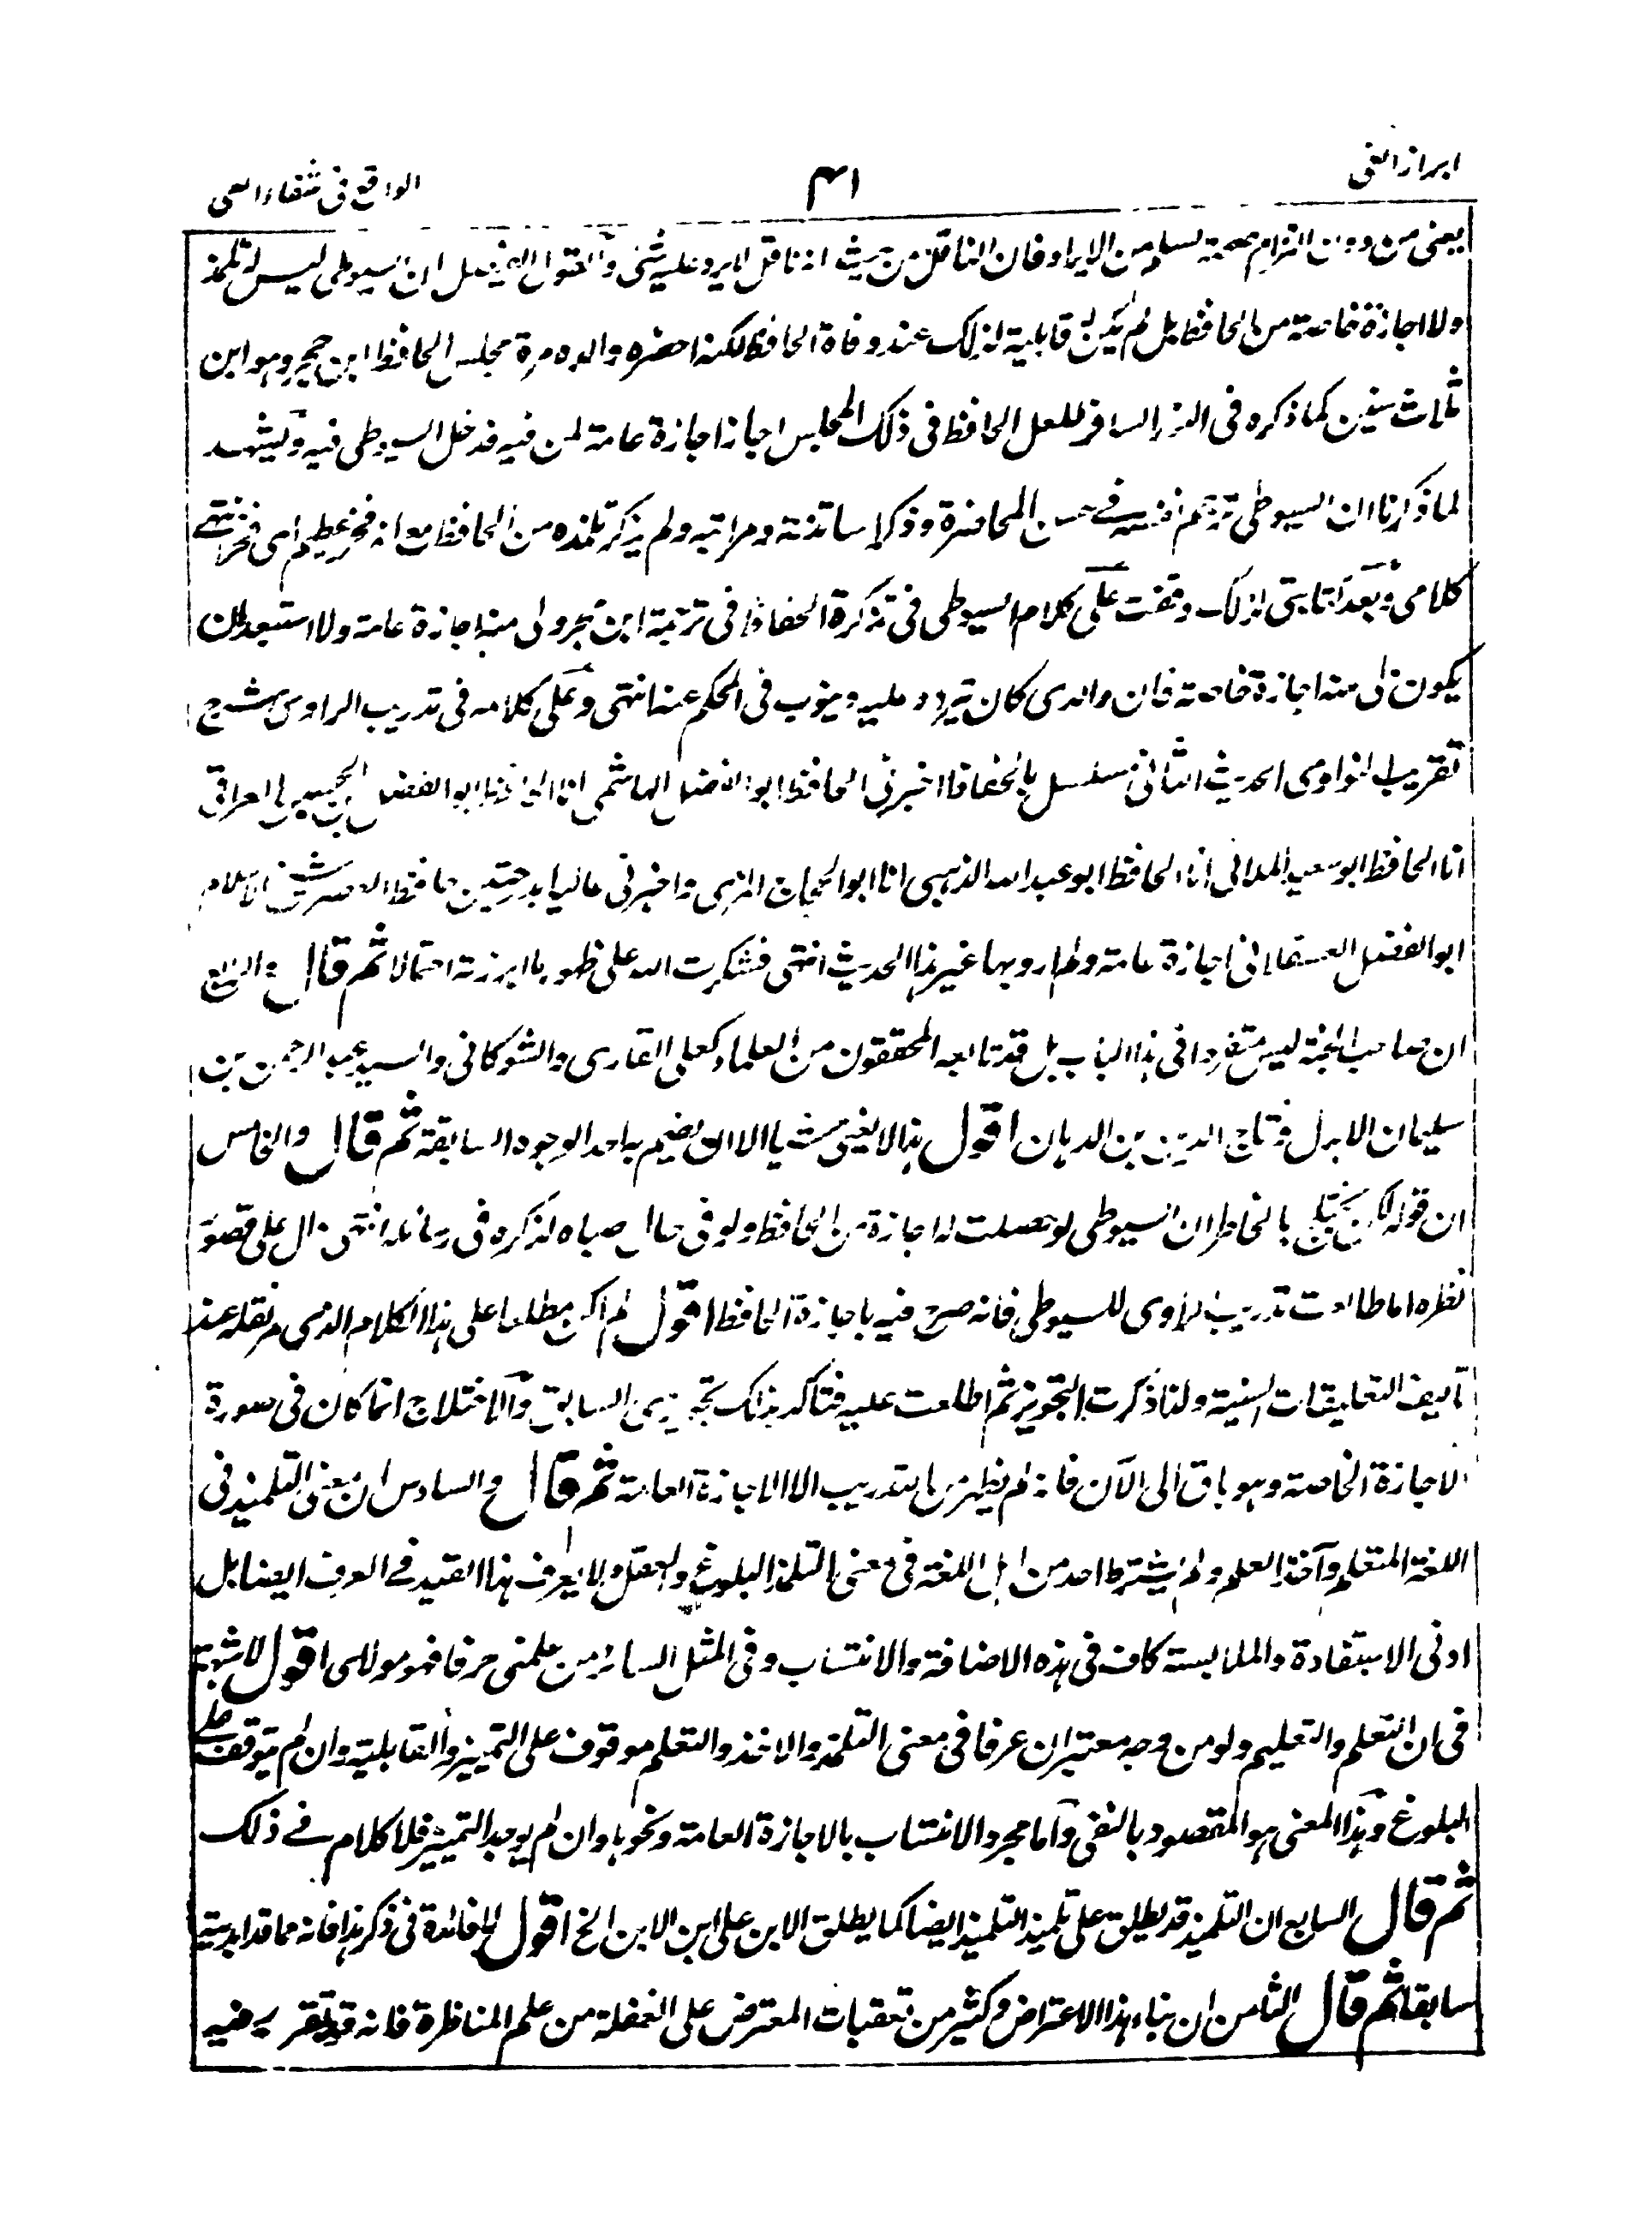 ابراز الغی
۴۱
الواقع فی شفاء العی
یعنی من دون التزام صحته لسلم من الایراد فان الناقل من حیث انه ناقل لا یرد علیه شئ والقول الفیصل ان السیوطی لیس له تلمذ
ولا اجازة خاصة من الحافظ بل لم یکن له قابلیة لذلک عند وفاة الحافظ لکنه احضره والده مرة مجلس الحافظ ابن حجر وهو ابن
ثلاث سنین کما ذکره فی النور السافر للعل الحافظ فی ذلک المجلس اجاز اجازة عامة لمن فیه فدخل السیوطی فیه ویشهد
لما ذکرنا ان السیوطی ترجم نفسه فی حسن المحاضرة وذکر اساتذته ومراتبه ولم یذکر تلمذه من الحافظ مع انه فخر عظیم ای فخر انتهی
کلامی وبعد کتابتی لذلک وقفت علی کلام السیوطی فی تذکرة الحفاظ فی ترجمة ابن حجر ولی منه اجازة عامة ولا استبعد ان
یکون لی منه اجازة خاصة فان والدی کان یتردد علیه وینوب فی الحکم عنه انتهی وعلی کلامه فی تدریب الراوی شرح
تقریب النواوی الحدیث الثانی مسلسل بالحفاظ اخبرنی الحافظ ابو الفضل الهاشمی انا الحافظ ابو الفضل بن الحسین العراقی
انا الحافظ ابو سعید العلائی انا الحافظ ابو عبد الله الذهبی انا ابو الحجاج المزی واخبرنی عالیا بدرجتین حافظ العصر شیخ الاسلام
ابو الفضل العسقلانی اجازة عامة ولم ارو بها غیر هذا الحدیث انتهی فشکرت الله علی ظهور ما ابرزته احتمالا ثم قال والرابع
ان صاحب الجنة لیس متفردا فی هذا الباب بل قد تابعه المحققون من العلماء کعلی القاری والشوکانی والسید عبد الرحمن بن
سلیمان الاهدل وتاج الدین بن الدهان اقول هذا لا یغنی شیئا الا ان یضم باحد الوجوه السابقة ثم قال والخامس
ان قوله لکن یختلج بالخاطر ان السیوطی لو حصلت له اجازة من الحافظ ولو فی حال صباه لذکره فی رسائله انتهی دال علی قصور
نظره اما طالعت تدریب الراوی للسیوطی فانه صرح فیه باجازة الحافظ اقول لم اکن مطلعا علی هذا الکلام الذی مر نقله عند
تالیف التعلیقات السنیة ولذا ذکرت بالتجویز ثم اطلعت علیه فتاکد بذلک تجویزی السابق والاختلاج انما کان فی صورة
الاجازة الخاصة وهو باق الی الآن فانه لم یظهر من التدریب الا الاجازة العامة ثم قال والسادس ان معنی التلمیذ فی
اللغة المتعلم وآخذ العلم ولم یشترط احد من اهل اللغة فی معنی التلمذ البلوغ والعقل ولا یعرف هذا القید فی العرف ایضا بل
ادنی الاستفادة والملابسة کاف فی هذه الاضافة والانتساب وفی المثل السائر من علمنی حرفا فهو مولای اقول لا شبهة
فی ان التعلم والتعلیم ولو من وجه معتبران عرفا فی معنی التلمذ والاخذ والتعلم موقوف علی التمییز والقابلیة وان لم یتوقف علی
البلوغ وهذا المعنی هو المقصود بالنفی واما مجرد الانتساب بالاجازة العامة ونحوها وان لم یوجد التمییز فلا کلام فی ذلک
ثم قال السابع ان التلمیذ قد یطلق علی تلمیذ التلمیذ ایضا کما یطلق الابن علی ابن الابن الخ اقول لا فائدة فی ذکر هذا فانه مما قد ابدیته
سابقا ثم قال الثامن ان بناء هذا الاعتراض وکثیر من تعقبات المعترض علی الغفلة من علم المناظرة فانه قد تقرر فیه